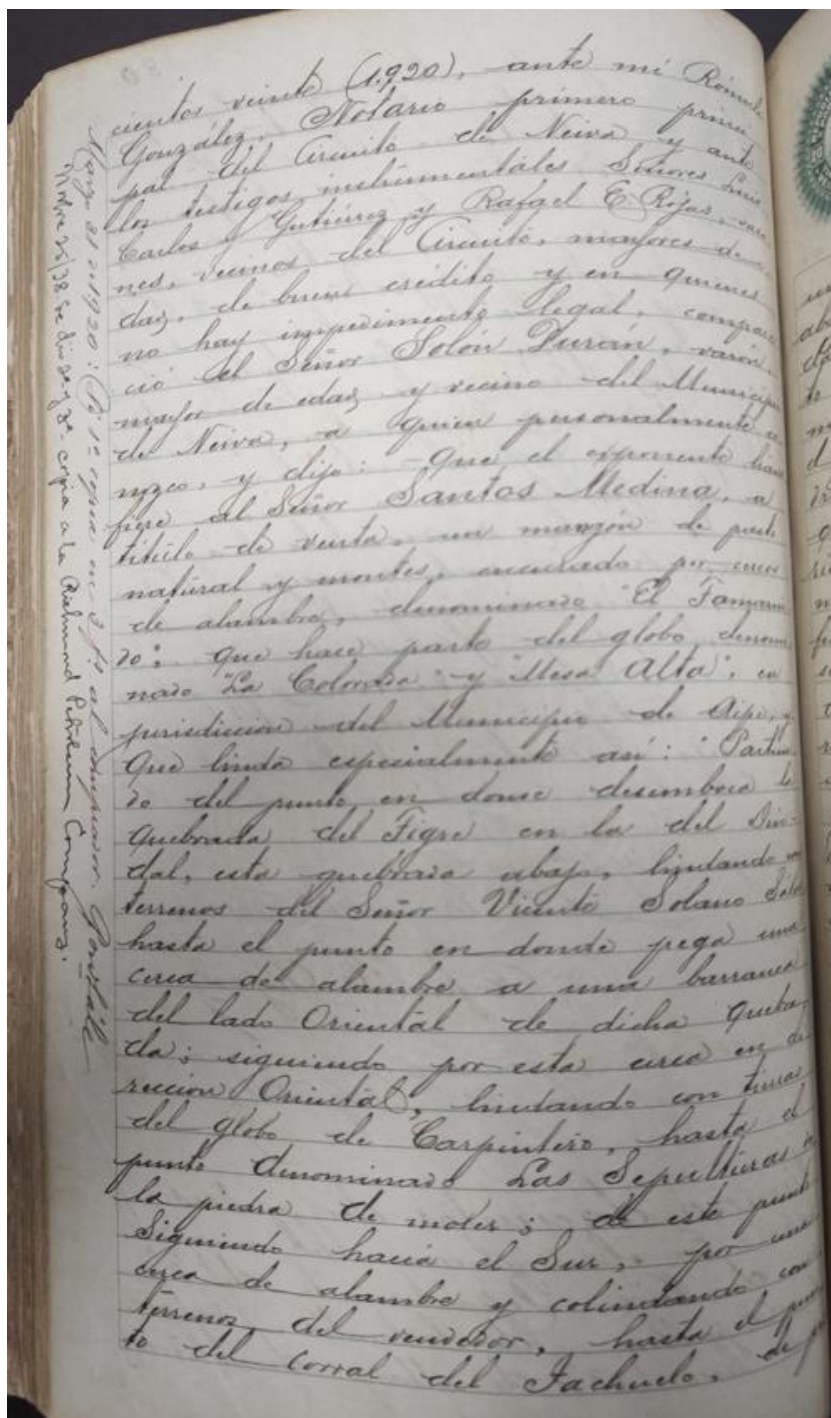 cientos veinte (1.920), ante mí Rómulo
González, Notario primero princi
pal del Circuito de Neiva y ante
los testigos instrumentales Señores Luis
Carlos Gutiérrez y Rafael E. Rojas, varo
nes, vecinos del Circuito, mayores de e
dad, de buen crédito y en quienes
no hay impedimento legal, compare
ció el Señor Solón Durán, varón,
mayor de edad y vecino del Municipio
de Neiva, a quien personalmente co
nozco, y dijo: - Que el exponente trans
fiere al Señor Santos Medina, a
título de venta, un mangón de pasto
natural y montes, encerrado por cercas
de alambre, denominado "El Tamarin
do", que hace parte del globo denomi
nado "La Colorada" y "Mesa Alta", en
jurisdiccion del Municipio de Aipe, y
que linda especialmente así: "Partien
do del punto en donde desemboca la
quebrada del Tigre en la del Din-
dal, esta quebrada abajo, lindando con
terrenos del Señor Vicente Solano
hasta el punto en donde pega una
cerca de alambre a una barranca
del lado Oriental de dicha quebra
da; siguiendo por esta cerca en di
reccion Oriental, lindando con tierras
del globo de Carpintero, hasta el
punto denominado Las Sepulturas o
la piedra de moler; de este punto
siguiendo hacia el Sur, por una
cerca de alambre y colindando con
terrenos del vendedor, hasta el pun
to del corral del Tachuelo, de
Marzo 21 de 1920: Di 1ª copia en 3 fs al comprador. González
Nobre 25/38 Se dió 2ª y 3ª copia a la Richmond Petroleum Company.